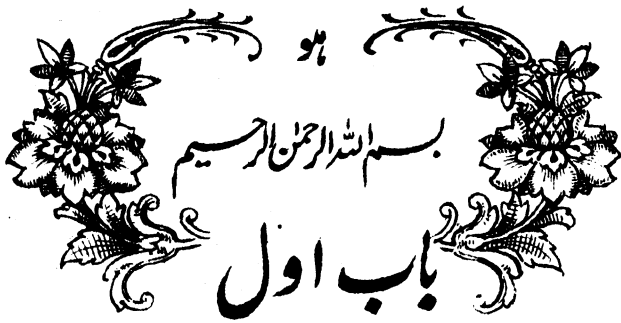 ہو
بسم اللہ الرحمٰن الرحیم
باب اوّل